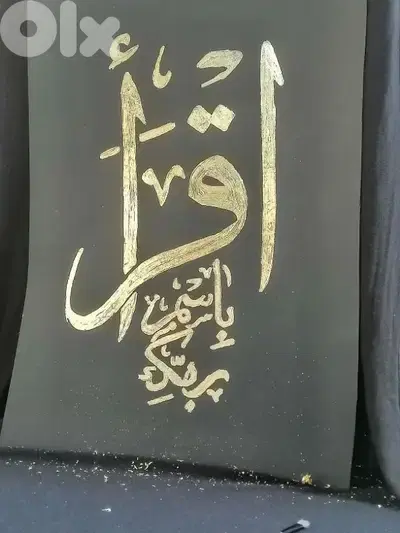 olx
اقرأ
باسم
ربك